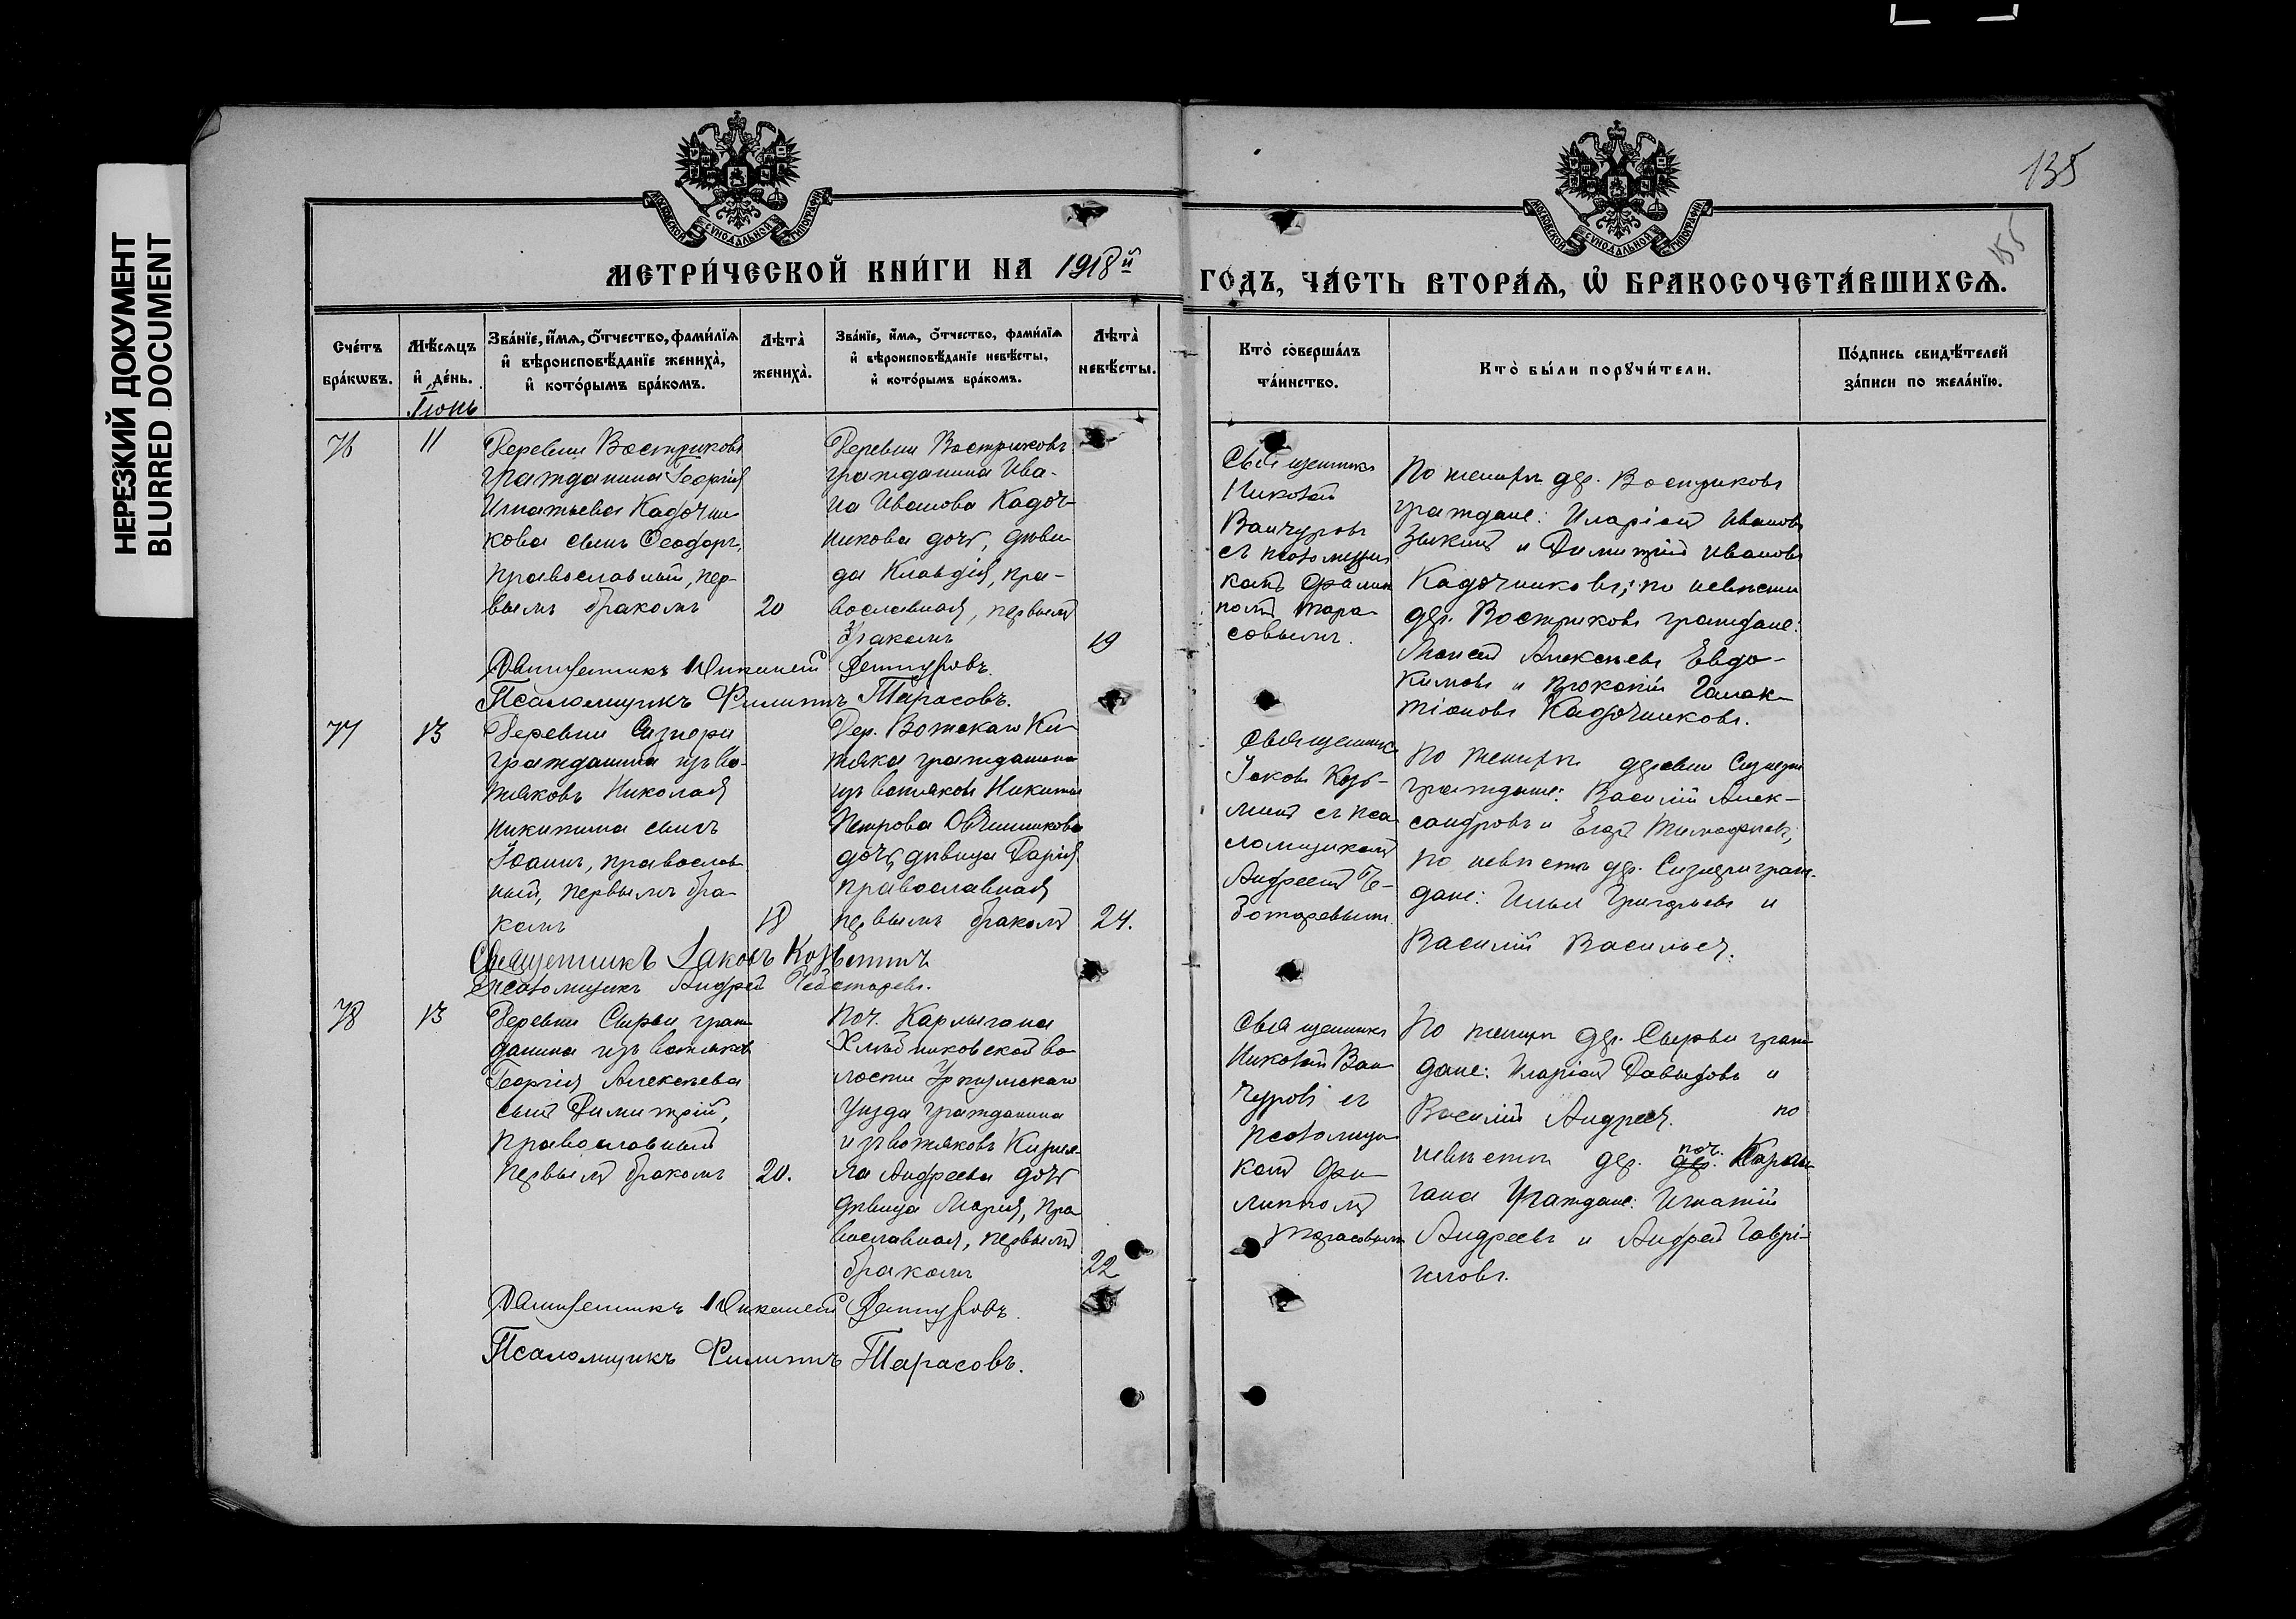 НЕРЕЗКИЙ ДОКУМЕНТ
BLURRED DOCUMENT
135
155
МОСКОВСКОЙ СУНОДАЛЬНОЙ ТИПОГРАФІИ
МОСКОВСКОЙ СУНОДАЛЬНОЙ ТИПОГРАФІИ
МЕТРИ́ЧЕСКОЙ КНИ́ГИ НА 1918й ГО́ДЪ, ЧА́СТЬ ВТОРА́Ѧ, Ѽ БРАКОСОЧЕТА́ВШИХСѦ.
Сче́тъ бра́кѡвъ.
Мѣ́сѧцъ и҆ де́нь.
Зва́нїе, и҆́мѧ, ѻ҆́тчество, фами́лїѧ и҆ вѣроисповѣ́данїе жениха̀, и҆ кото́рымъ бра́комъ.
Лѣта̀ жениха̀.
Зва́нїе, и҆́мѧ, ѻ҆́тчество, фами́лїѧ и҆ вѣроисповѣ́данїе невѣ́сты, и҆ кото́рымъ бра́комъ.
Лѣта̀ невѣ́сты.
Кто̀ соверша́лъ та́инство.
Кто̀ бы́ли порꙋчи́тели.
По́дпись свидѣ́телей за́писи по жела́нїю.
Іюнь
76
11
Деревни Востриковъ
гражданина Георгія
Игнатьева Кадочни
кова сынъ Ѳеодоръ,
православный, пер-
вымъ бракомъ
20
Деревни Востриковъ
гражданина Ива-
на Иванова Кадоч-
никова дочь, дѣви
ца Клавдія, пра-
вославная, первымъ
бракомъ
19
Священникъ
Николай
Ванчуровъ
съ псаломщи
комъ Филип
помъ Тара
совымъ.
По женихѣ дер. Востриковъ
граждане: Иларіонъ Ивановъ
Зыкинъ и Димитрій Ивановъ
Кадочниковъ; по невѣстѣ
дер. Востриковъ граждане:
Моисей Алексѣевъ Евдо-
кимовъ и Прокопій Галак-
тіоновъ Кадочниковъ.
Священникъ Николай Ванчуровъ.
Псаломщикъ Филиппъ Тарасовъ.
77
13
Деревни Сизнери
гражданина изъ во-
тяковъ Николая
Никитина сынъ
Іоаннъ, православ
ный, первымъ бра-
комъ
18
Дер. Вотскаго Ки-
тяка гражданина
изъ вотяковъ Никиты
Петрова Овчинникова
дочь, дѣвица Дарія
православная
первымъ бракомъ
24.
Священникъ
Іаковъ Козь-
минъ съ пса
ломщикомъ
Андреемъ Че-
ботаревымъ.
По женихѣ деревни Сизнери
граждане: Василій Алек-
сандровъ и Егоръ Тимофеевъ;
по невѣстѣ дер. Сизнери граж-
дане: Илья Григорьевъ и
Василій Васильевъ.
Священникъ Іаковъ Козьминъ
Псаломщикъ Андрей Чеботаревъ.
78
13
Деревни Сырьи граж
данина изъ вотяковъ
Георгія Алексѣева
сынъ Димитрій,
православный
первымъ бракомъ
20.
Поч. Кармыгана
Хлѣбниковской во
лости Уржумскаго
Уѣзда гражданина
изъ вотяковъ Кирил
ла Андреева дочь
дѣвица Марія, пра
вославная, первымъ
бракомъ
22
Священникъ
Николай Ван
чуровъ съ
псаломщи
комъ Фи-
липпомъ
Тарасовымъ
По женихѣ дер. Сырьи граж
дане: Иларіонъ Давыдовъ и
Василій Андреевъ. по
невѣстѣ дер. поч. Кармы
гана граждане: Игнатій
Андреевъ и Андрей Гаврі-
иловъ.
Священникъ Николай Ванчуровъ.
Псаломщикъ Филиппъ Тарасовъ.